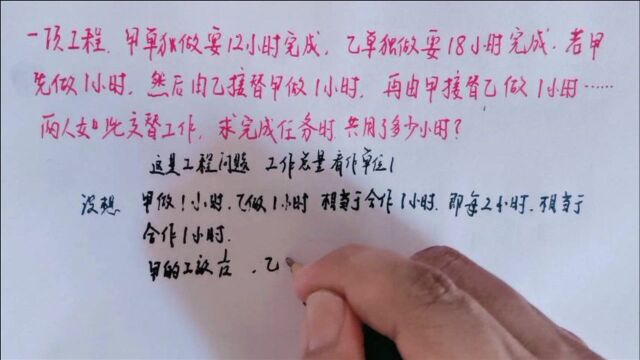 一项工程,甲单独做要12小时完成,乙单独做要18小时完成.若甲
先做1小时,然后由乙接替甲做1小时,再由甲接替乙做1小时……
两人如此交替工作,求完成任务时共用了多少小时?
这是工程问题 工作总量看作单位1
设想 甲做1小时,乙做1小时 相当于合作1小时.即每2小时,相当于
合作1小时.
甲的工效1/12,乙